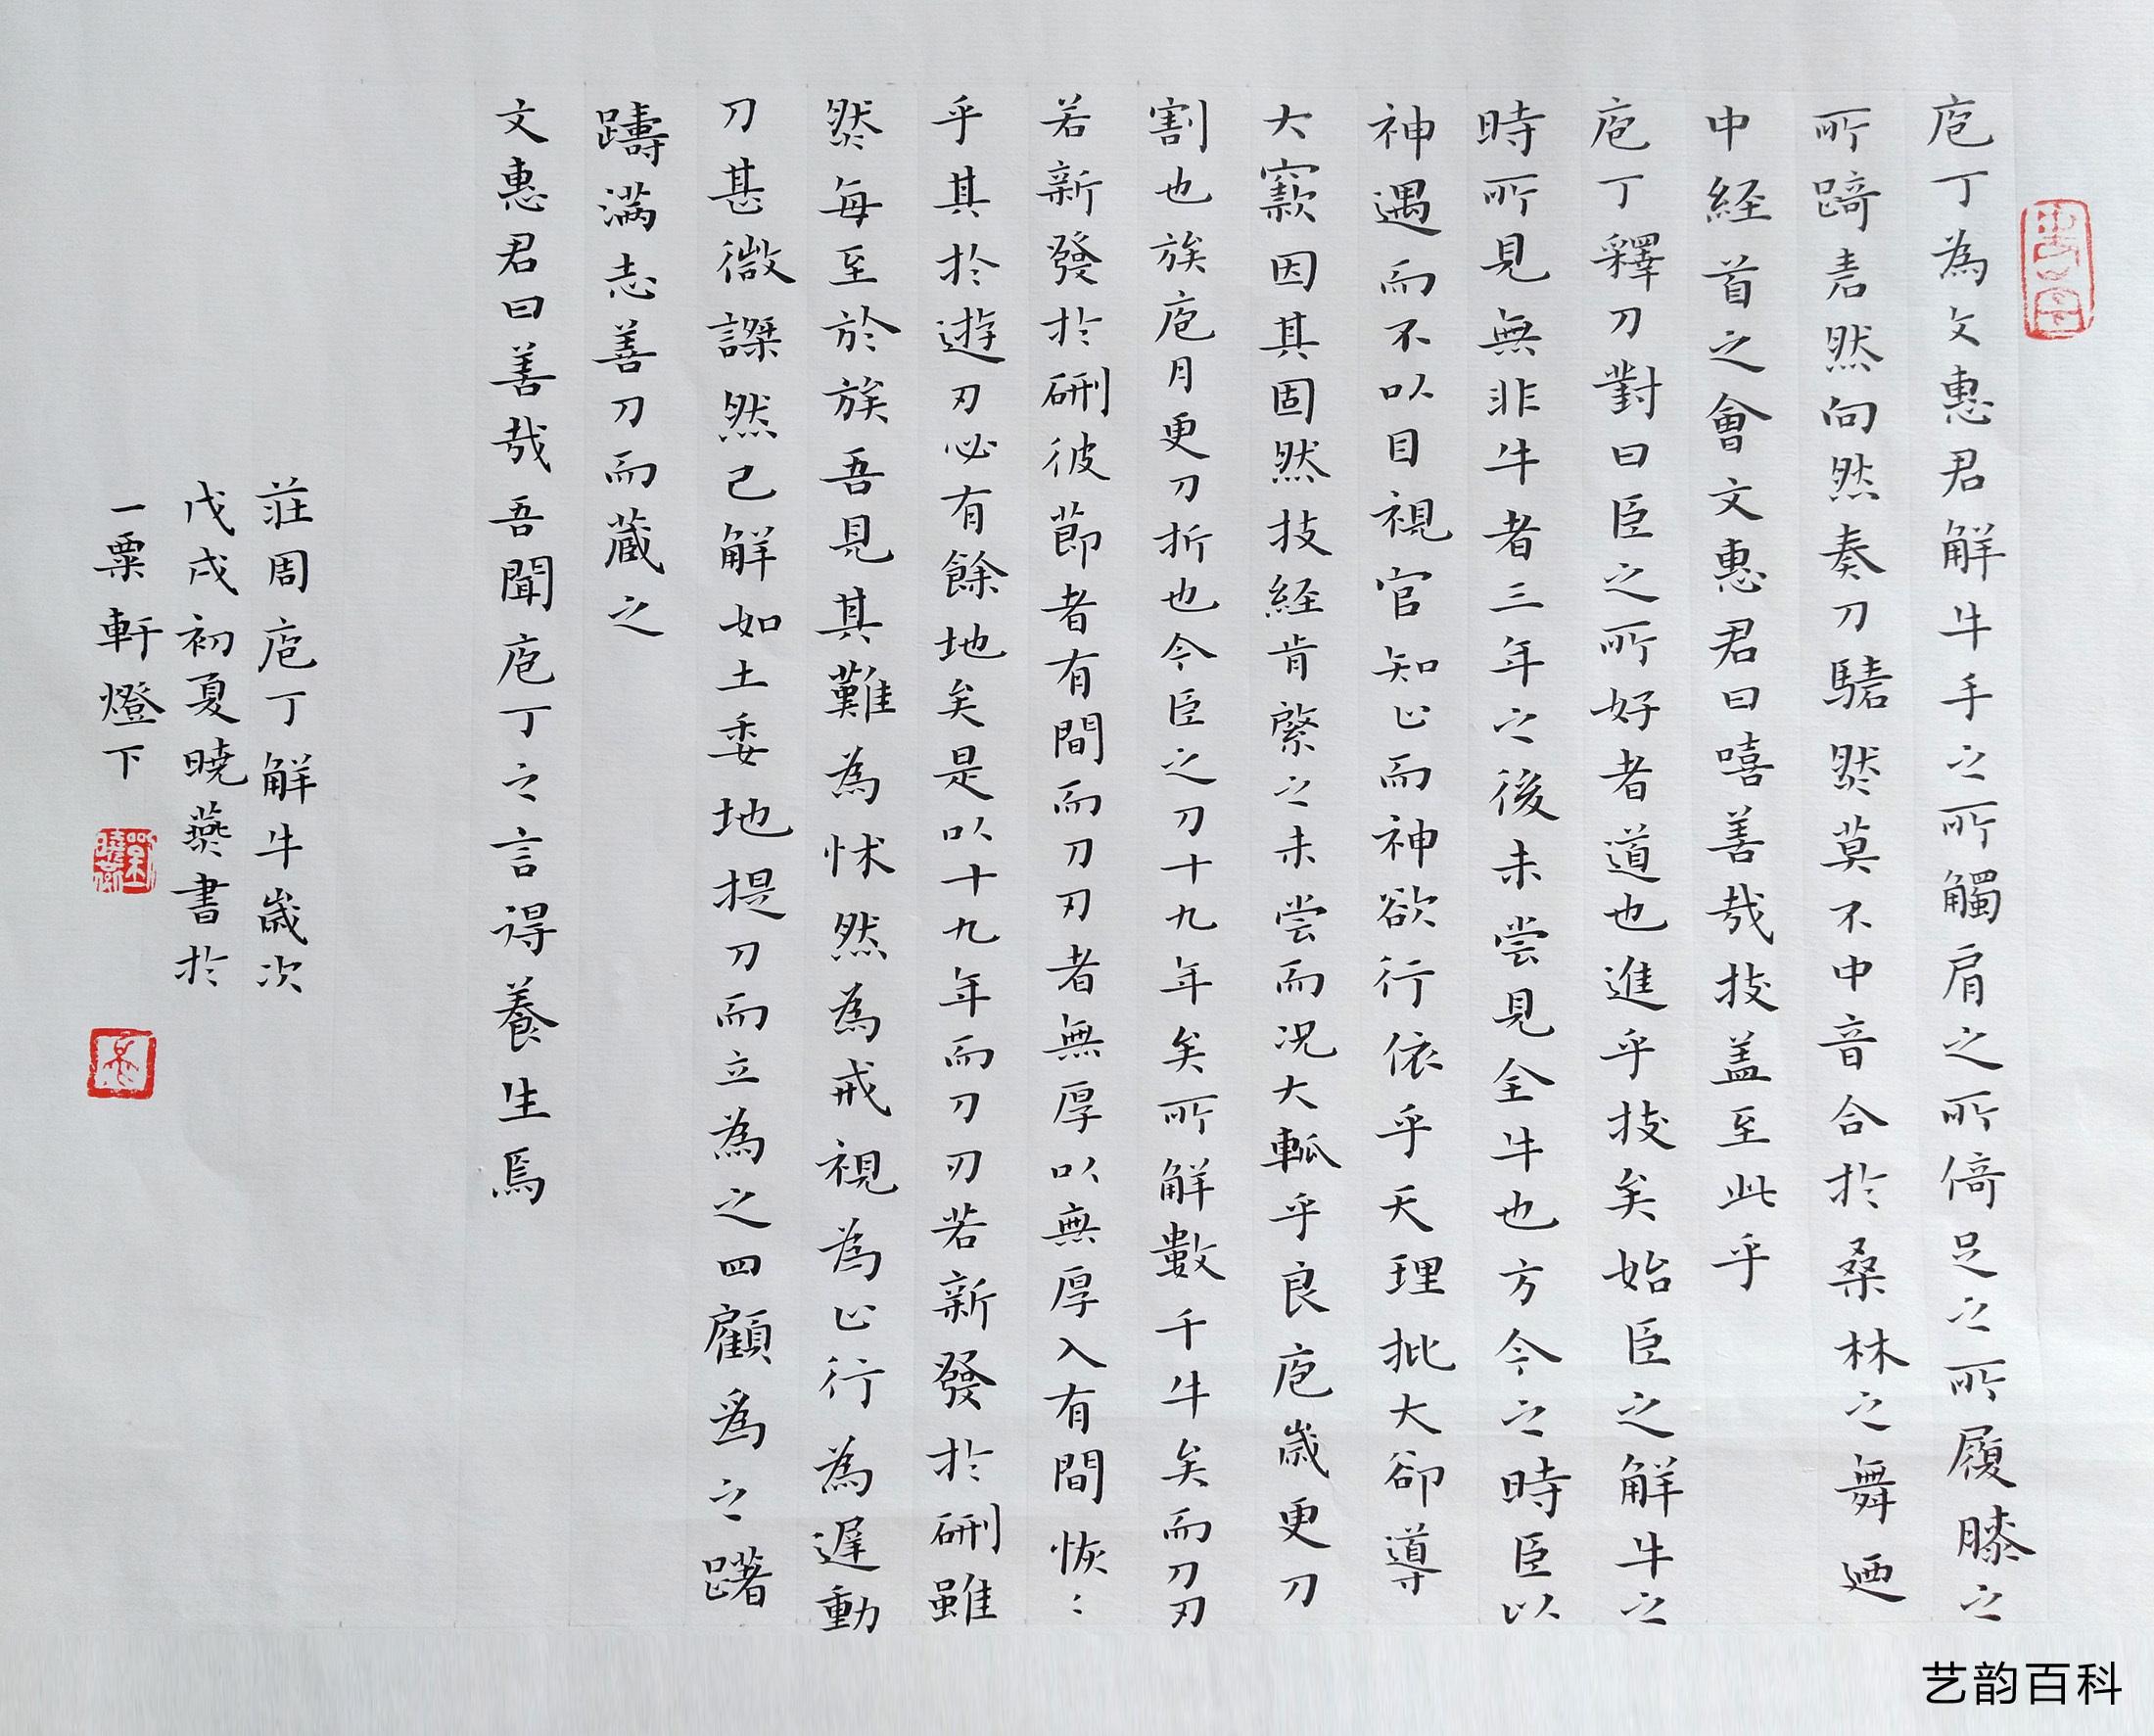 庖丁為文惠君解牛手之所觸肩之所倚足之所履膝之
所踦砉然向然奏刀騞然莫不中音合於桑林之舞迺
中経首之會文惠君曰嘻善哉技盖至此乎
庖丁釋刀對曰臣之所好者道也進乎技矣始臣之解牛之
時所見無非牛者三年之後未尝見全牛也方今之時臣以
神遇而不以目視官知止而神欲行依乎天理批大郤導
大窾因其固然技経肯綮之未尝而况大軱乎良庖歲更刀
割也族庖月更刀折也今臣之刀十九年矣所解數千牛矣而刀刃
若新發於硎彼節者有間而刀刃者無厚以無厚入有間恢〻
乎其於遊刃必有餘地矣是以十九年而刀刃若新發於硎雖
然每至於族吾見其難為怵然為戒視為止行為遲動
刀甚微謋然已解如土委地提刀而立為之四顧為之躇
躊满志善刀而蔵之
文惠君曰善哉吾聞庖丁之言得養生焉
莊周庖丁解牛歲次
戊戌初夏曉燕書於
一粟軒燈下
艺韵百科